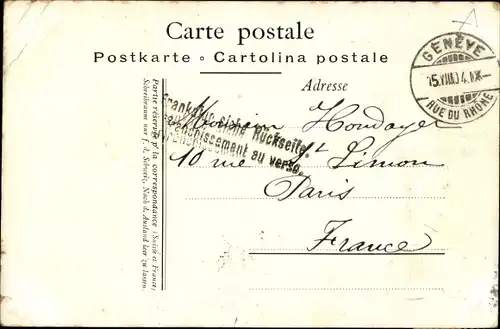 Carte postale
Postkarte • Cartolina postale
Adresse
GENÈVE
15.VIII.04.IX
RUE DU RHÔNE
Frankatur siehe Rückseite.
Affranchissement au verso.
Monsieur Houdayer
10 rue St Simon
Paris
France
Partie réservée p' la correspondance (Suisse et France)
Schreibraum nur f. d. Schweiz. Nach d. Ausland leer zu lassen.